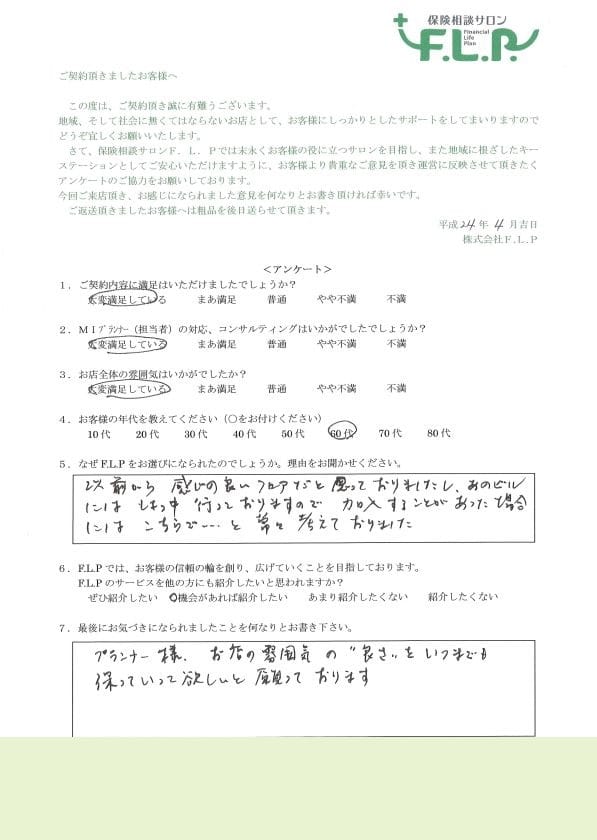 保険相談サロン
F.L.P.
Financial
Life
Plan
ご契約頂きましたお客様へ
この度は、ご契約頂き誠に有難うございます。
地域、そして社会に無くてはならないお店として、お客様にしっかりとしたサポートをしてまいりますので
どうぞ宜しくお願いいたします。
さて、保険相談サロンＦ．Ｌ．Ｐでは末永くお客様の役に立つサロンを目指し、また地域に根ざしたキー
ステーションとしてご安心いただけますように、お客様より貴重なご意見を頂き運営に反映させて頂きたく
アンケートのご協力をお願いしております。
今回ご来店頂き、お感じになられました意見を何なりとお書き頂ければ幸いです。
ご返送頂きましたお客様へは粗品を後日送らせて頂きます。
平成 24 年 4 月吉日
株式会社Ｆ.Ｌ.Ｐ
＜アンケート＞
１．ご契約内容に満足はいただけましたでしょうか？
大変満足している まあ満足 普通 やや不満 不満
２．ＭＩﾌﾟﾗﾝﾅｰ（担当者）の対応、コンサルティングはいかがでしたでしょうか？
大変満足している まあ満足 普通 やや不満 不満
３．お店全体の雰囲気はいかがでしたか？
大変満足している まあ満足 普通 やや不満 不満
４．お客様の年代を教えてください（○をお付けください）
10代 20代 30代 40代 50代 60代 70代 80代
５．なぜF.L.Pをお選びになられたのでしょうか。理由をお聞かせください。
以前から 感じの良いフロアだと思っておりましたし、あのビル
には しょっ中 行っておりますので 加入することがあった場合
には こちらで……と 常々 考えておりました
６．F.L.Pでは、お客様の信頼の輪を創り、広げていくことを目指しております。
F.L.Pのサービスを他の方にも紹介したいと思われますか？
ぜひ紹介したい ○機会があれば紹介したい あまり紹介したくない 紹介したくない
７．最後にお気づきになられましたことを何なりとお書き下さい。
プランナー様、お店の雰囲気の "良さ"を いつまでも
保っていって欲しいと 願って おります